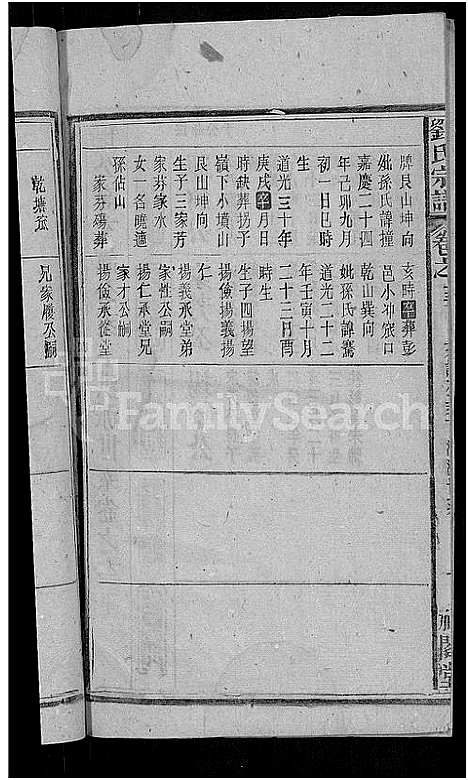 劉氏宗譜
牌艮山坤向
妣孫氏諱撞
嘉慶二十四
年己卯九月
初一日巳時
生
道光三十年
庚戌卒月日
時缺葬拐予
嶺下小墳山
艮山坤向
生子三家芳
家芬家水
女一名曉適
孫佔山
家芬殤葬
亥時卒葬彭
邑小冲窊口
乾山巽向
妣孫氏諱鸞
道光二十二
年壬寅十月
二十三日酉
時生
生子四揚望
揚儉揚義揚
仁
揚義承堂弟
家性公嗣
揚仁承堂兄
家才公嗣
揚儉承從堂
乾塘茔
兄家殷公嗣
FamilySearch